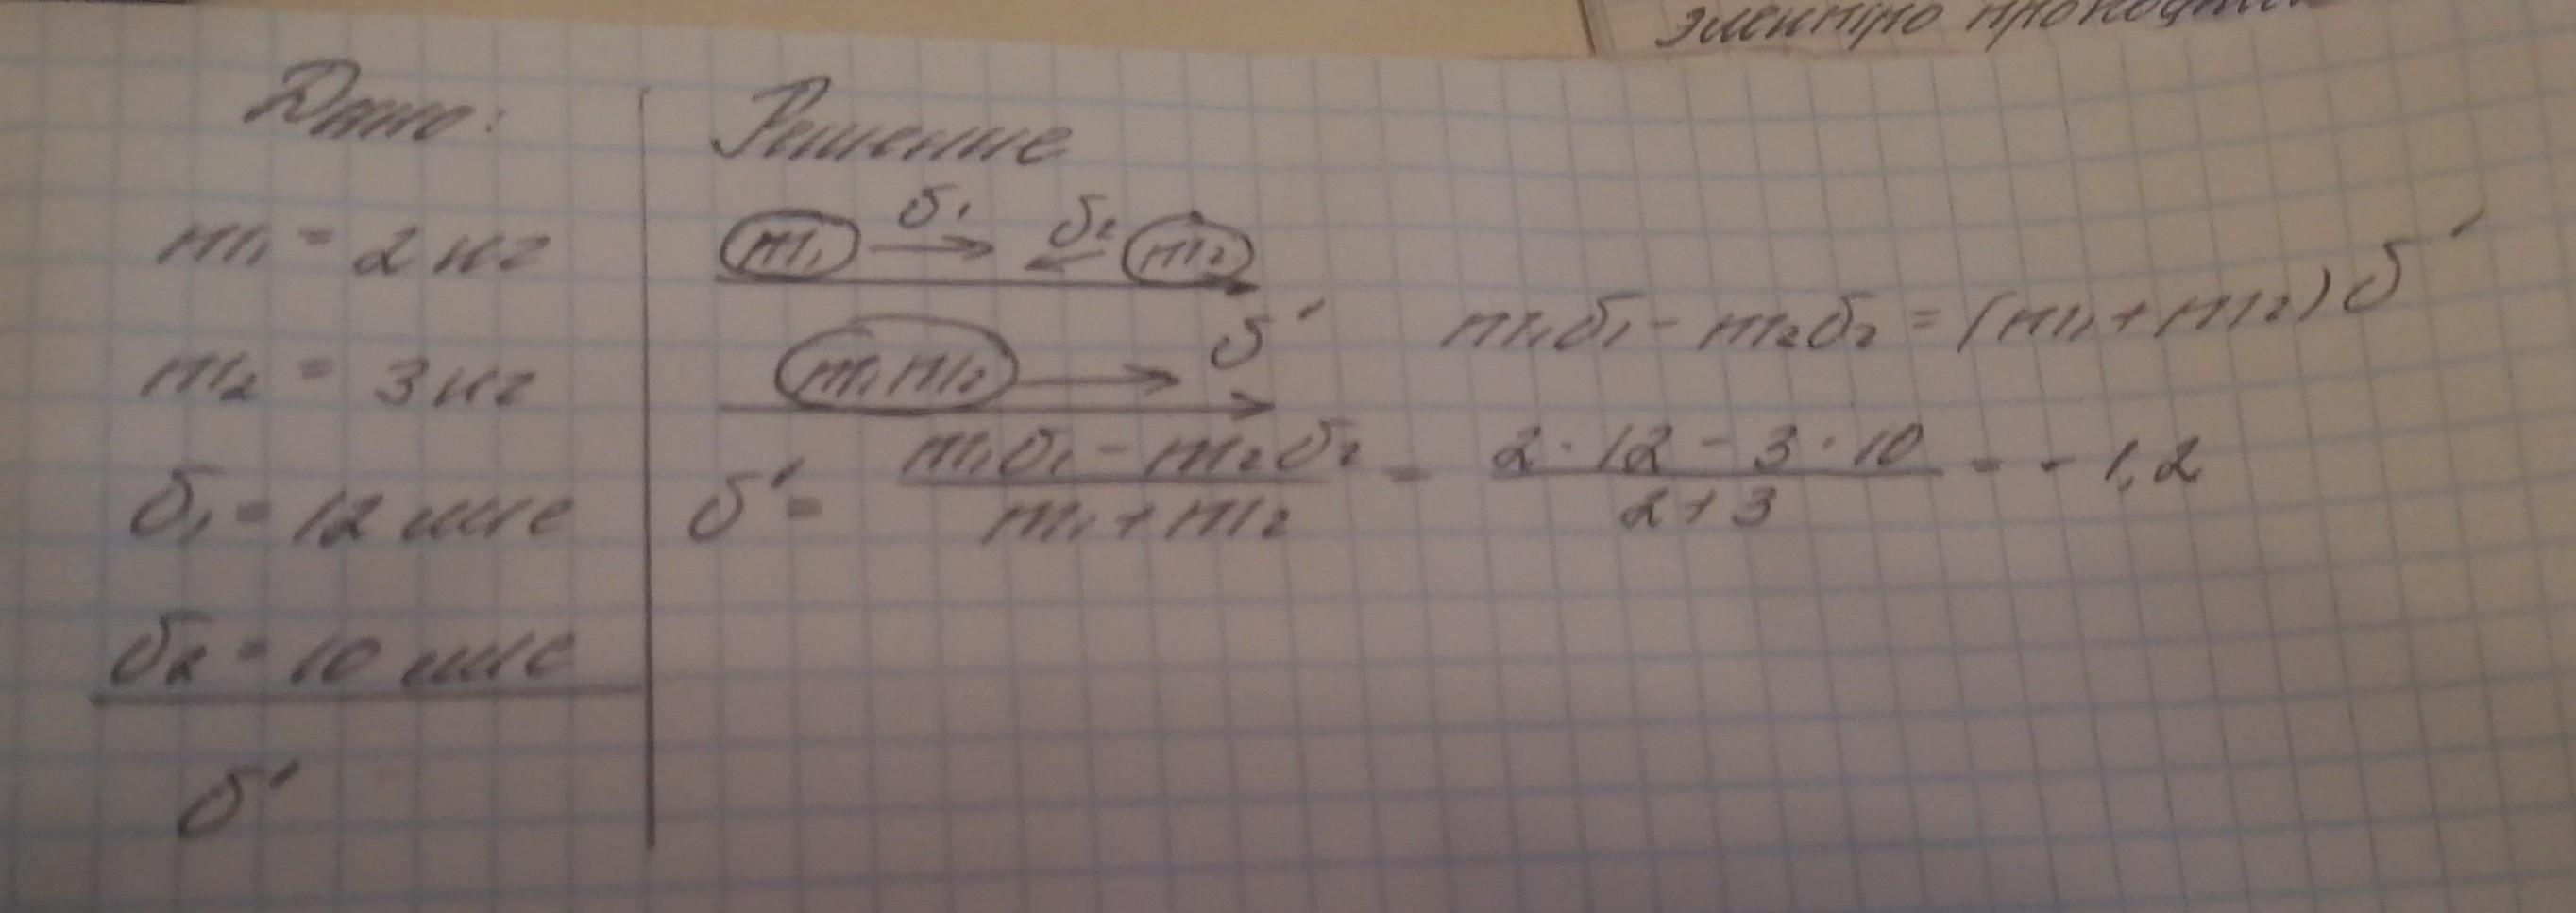 электро проводник
Дано:
m₁ = 2 кг
m₂ = 3 кг
υ₁ = 12 м/с
υ₂ = 10 м/с
υ'
Решение
m₁ υ₁ υ₂ m₂
m₁ m₂ υ'
m₁υ₁ - m₂υ₂ = (m₁ + m₂)υ'
υ' = (m₁υ₁ - m₂υ₂)/(m₁ + m₂) = (2 · 12 - 3 · 10)/(2 + 3) = - 1,2